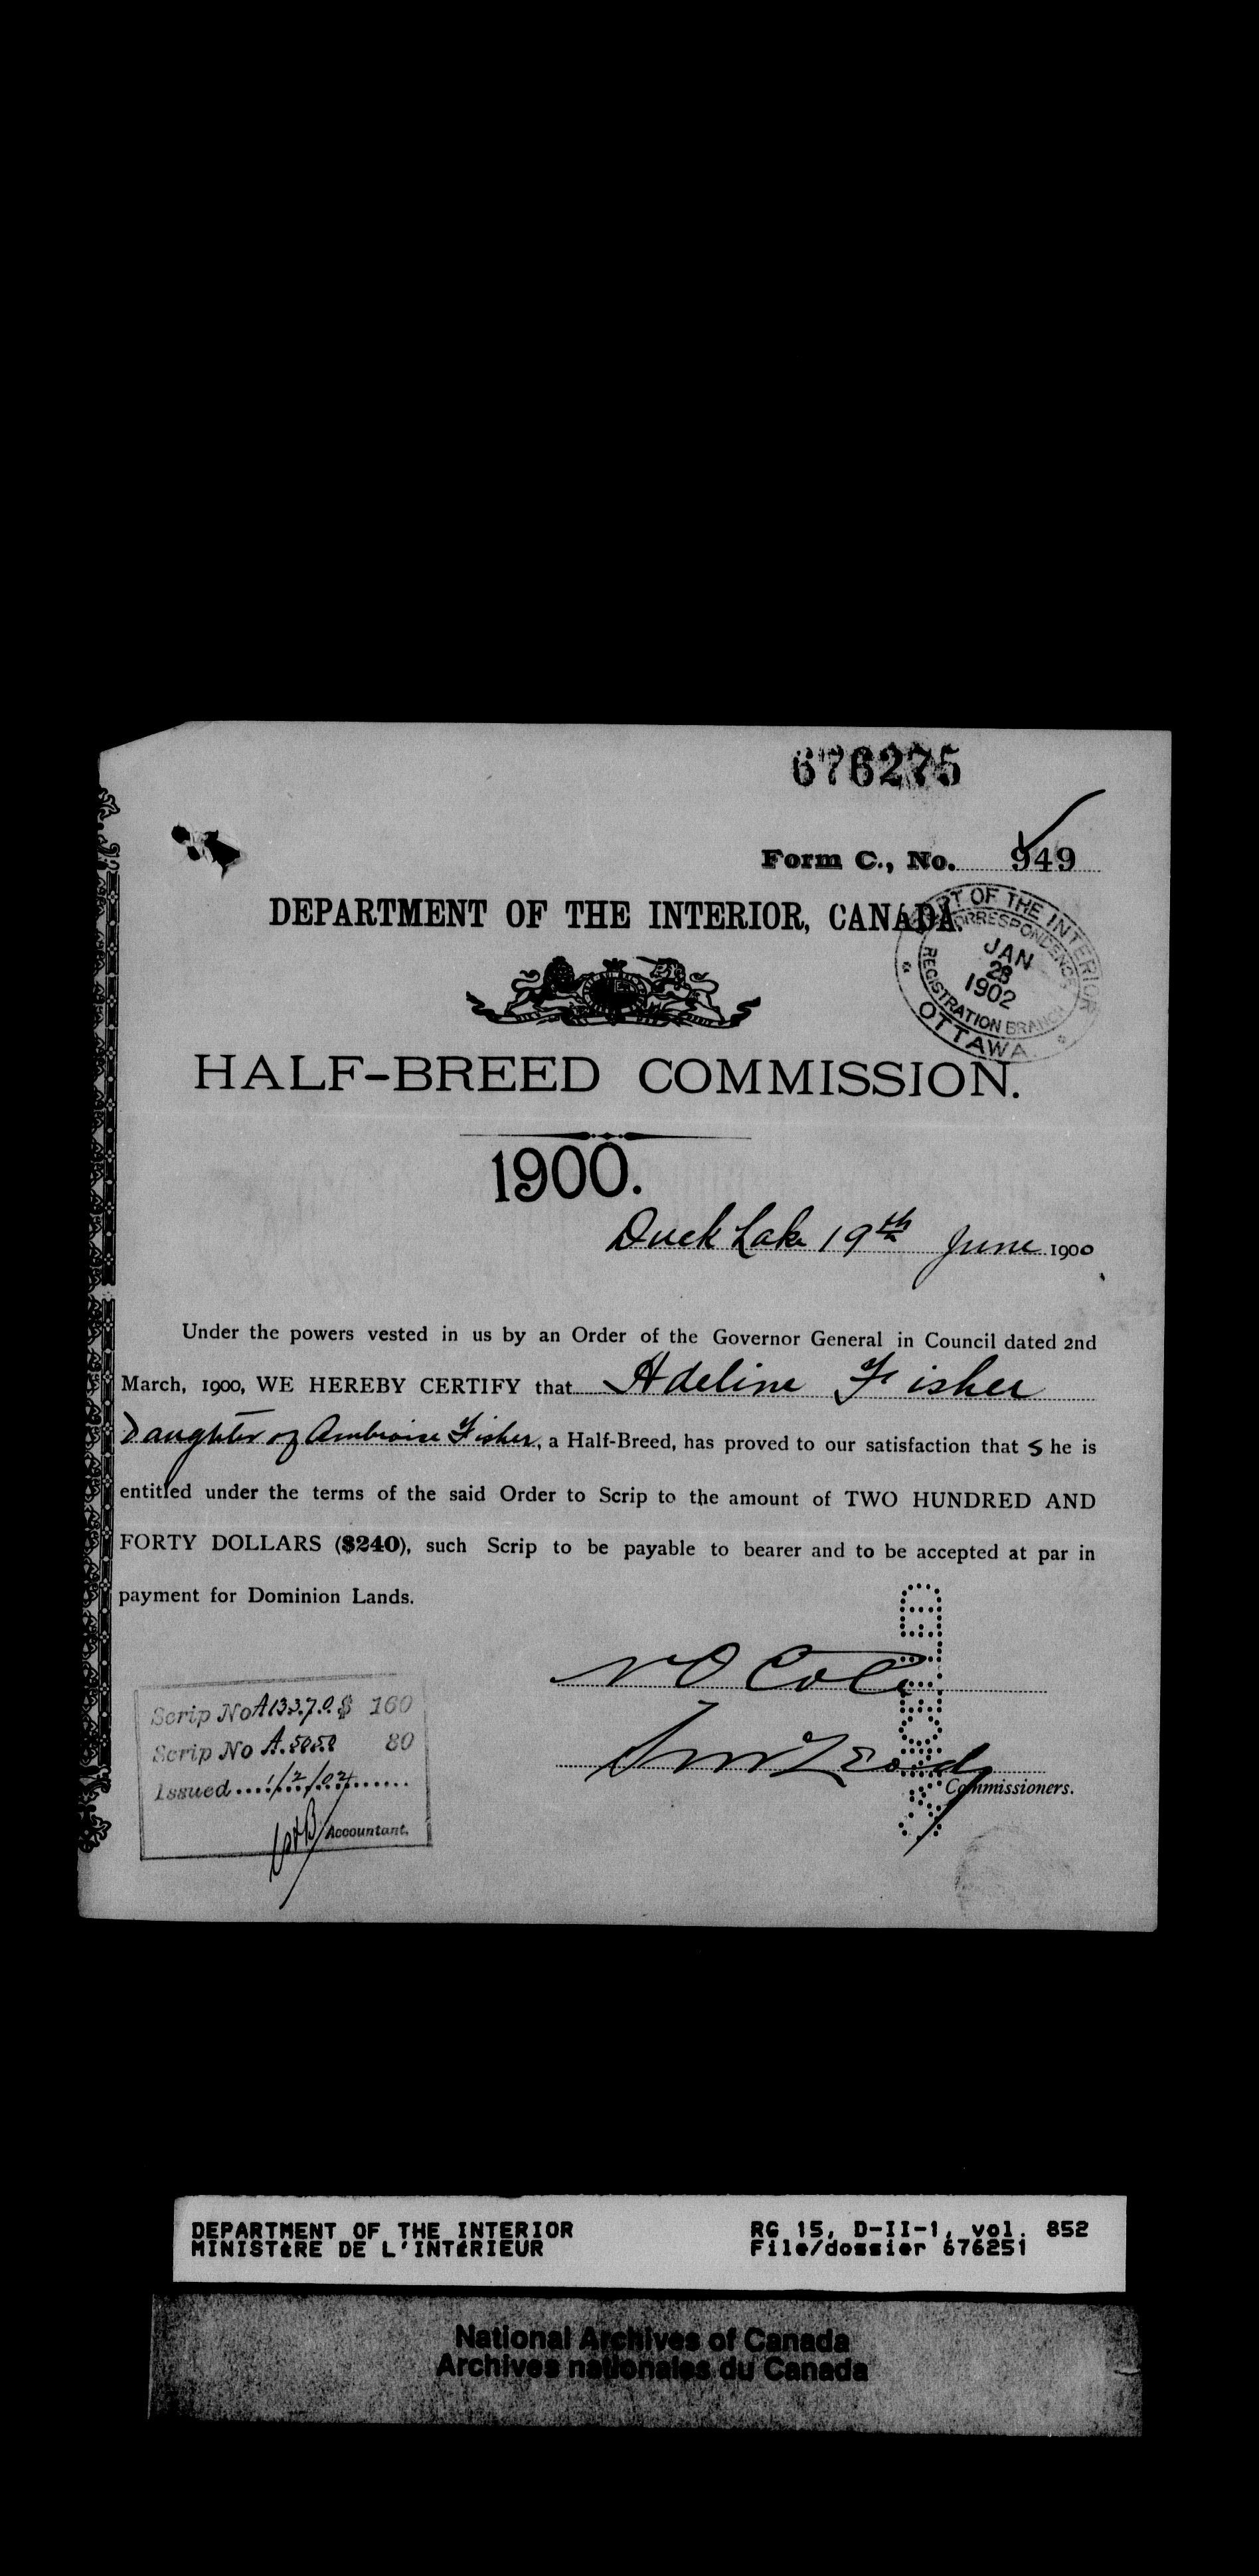 676275
Form C., No. 949
DEPARTMENT OF THE INTERIOR, CANADA.
DEPT OF THE INTERIOR
CORRESPONDENCE
JAN
28
1902
REGISTRATION BRANCH
OTTAWA
HALF-BREED COMMISSION.
1900.
Duck Lake 19th June 1900
Under the powers vested in us by an Order of the Governor General in Council dated 2nd
March, 1900, WE HEREBY CERTIFY that Adeline Fisher
Daughter of Ambroise Fisher, a Half-Breed, has proved to our satisfaction that She is
entitled under the terms of the said Order to Scrip to the amount of TWO HUNDRED AND
FORTY DOLLARS ($240), such Scrip to be payable to bearer and to be accepted at par in
payment for Dominion Lands.
Scrip No A13370 $ 160
Scrip No A.5050 80
Issued 1/2/02
Accountant.
N O Coté
Commissioners.
DEPARTMENT OF THE INTERIOR
MINISTÈRE DE L'INTÉRIEUR
RG 15, D-II-1, vol. 852
File/dossier 676251
National Archives of Canada
Archives nationales du Canada